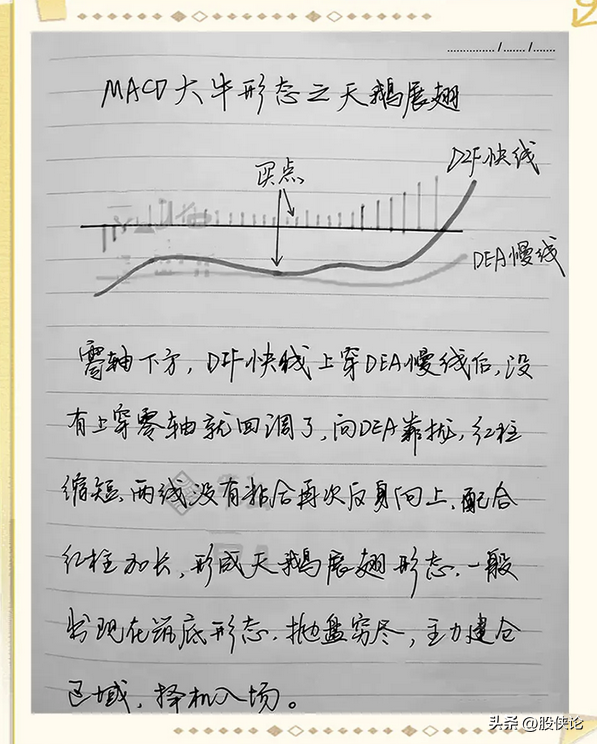 ............... /....... /.......
MACD大牛形态之天鹅展翅
买点
DIF快线
DEA慢线
零轴下方，DIF快线上穿DEA慢线后，没
有上穿零轴就回调了，向DEA靠拢，红柱
缩短，两线没有粘合再次反身向上，配合
红柱加长，形成天鹅展翅形态，一般
出现在筑底形态，抛盘穷尽，主力建仓
区域，择机入场。
头条 @股侠论